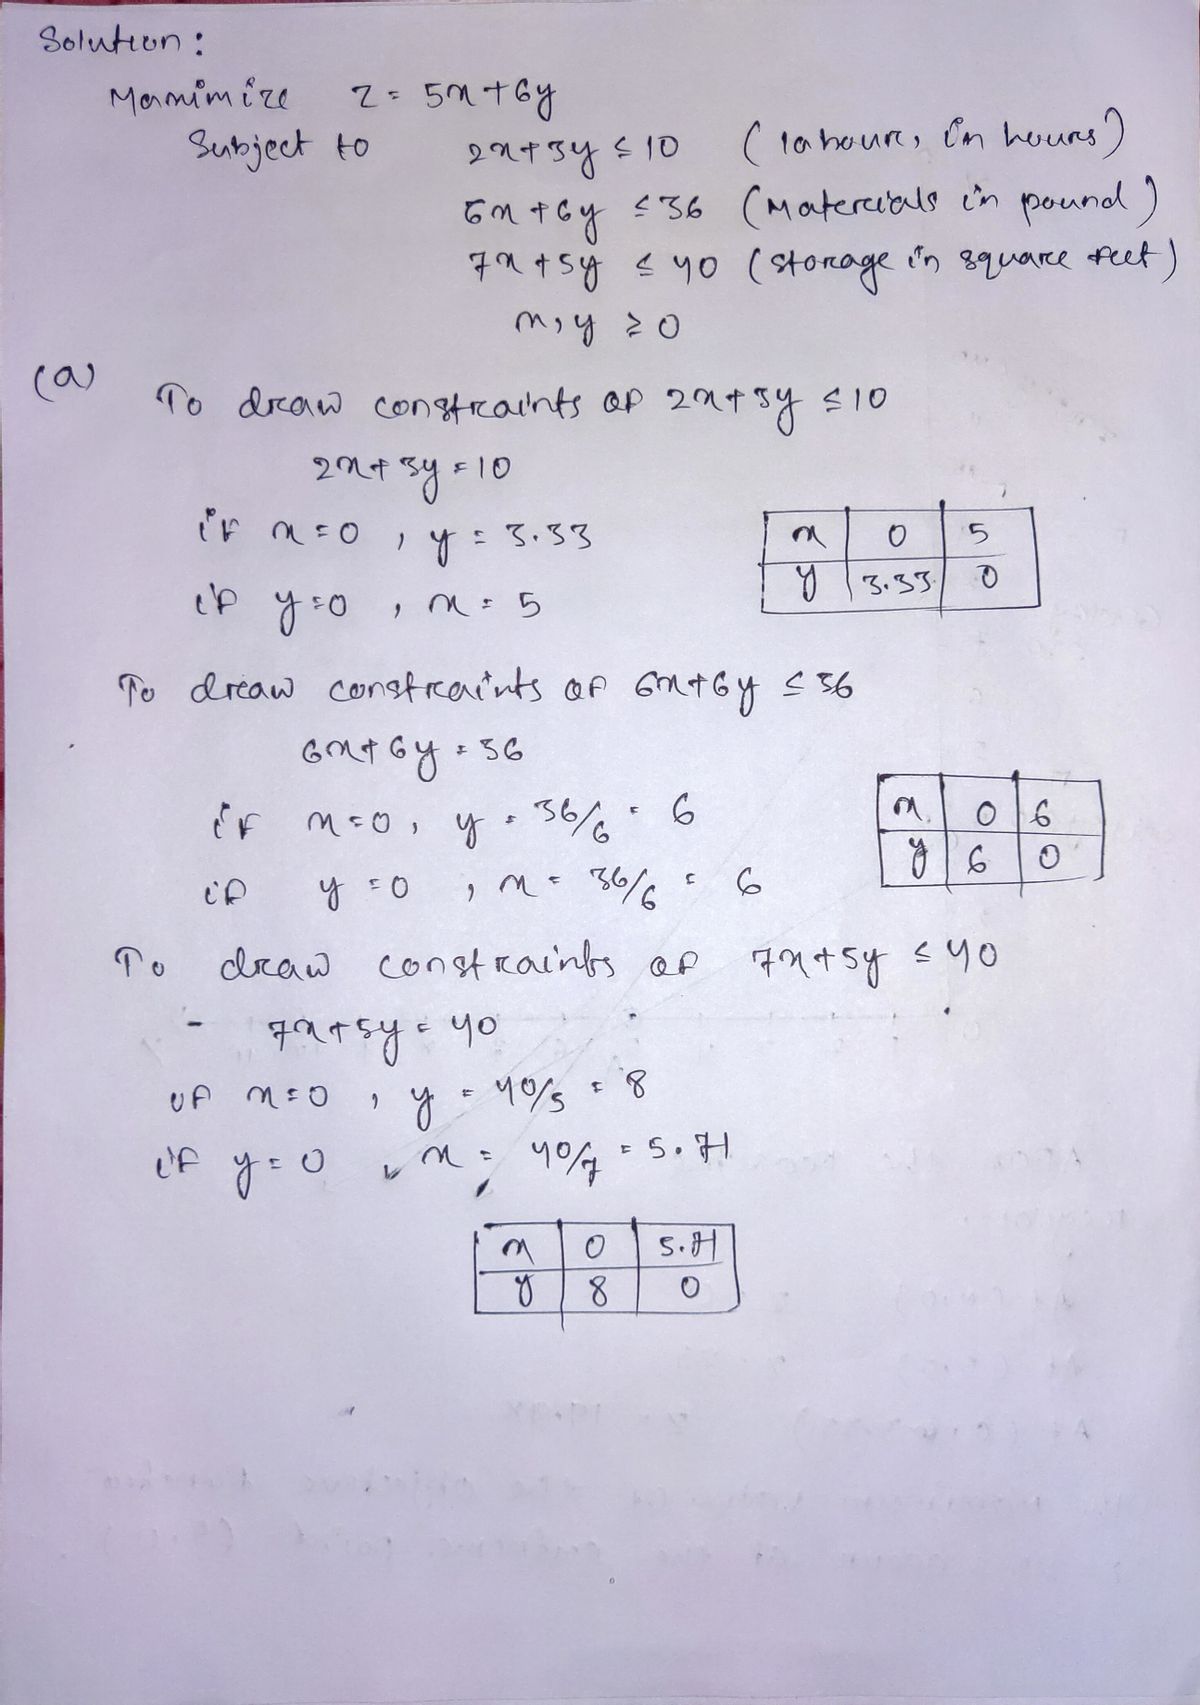 Solution:
Maximize Z = 5x+6y
Subject to 2x+3y ≤ 10 (labour, in hours)
6x+6y ≤ 36 (Materials in pound)
7x+5y ≤ 40 (storage in square feet)
x, y ≥ 0
(a)
To draw constraints of 2x+3y ≤ 10
2x+3y = 10
if x=0, y = 3.33
if y=0, x = 5
x 0 5
y 3.33 0
To draw constraints of 6x+6y ≤ 36
6x+6y = 36
if x=0, y = 36/6 = 6
if y=0, x = 36/6 = 6
x 0 6
y 6 0
To draw constraints of 7x+5y ≤ 40
- 7x+5y = 40
if x=0, y = 40/5 = 8
if y=0, x = 40/7 = 5.71
x 0 5.71
y 8 0